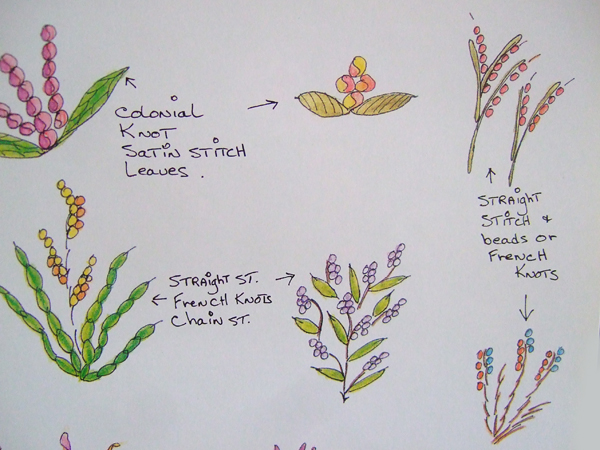 Colonial
Knot
Satin Stitch
Leaves.
Straight St.
French Knots
Chain St.
Straight
Stitch &
beads or
French
Knots